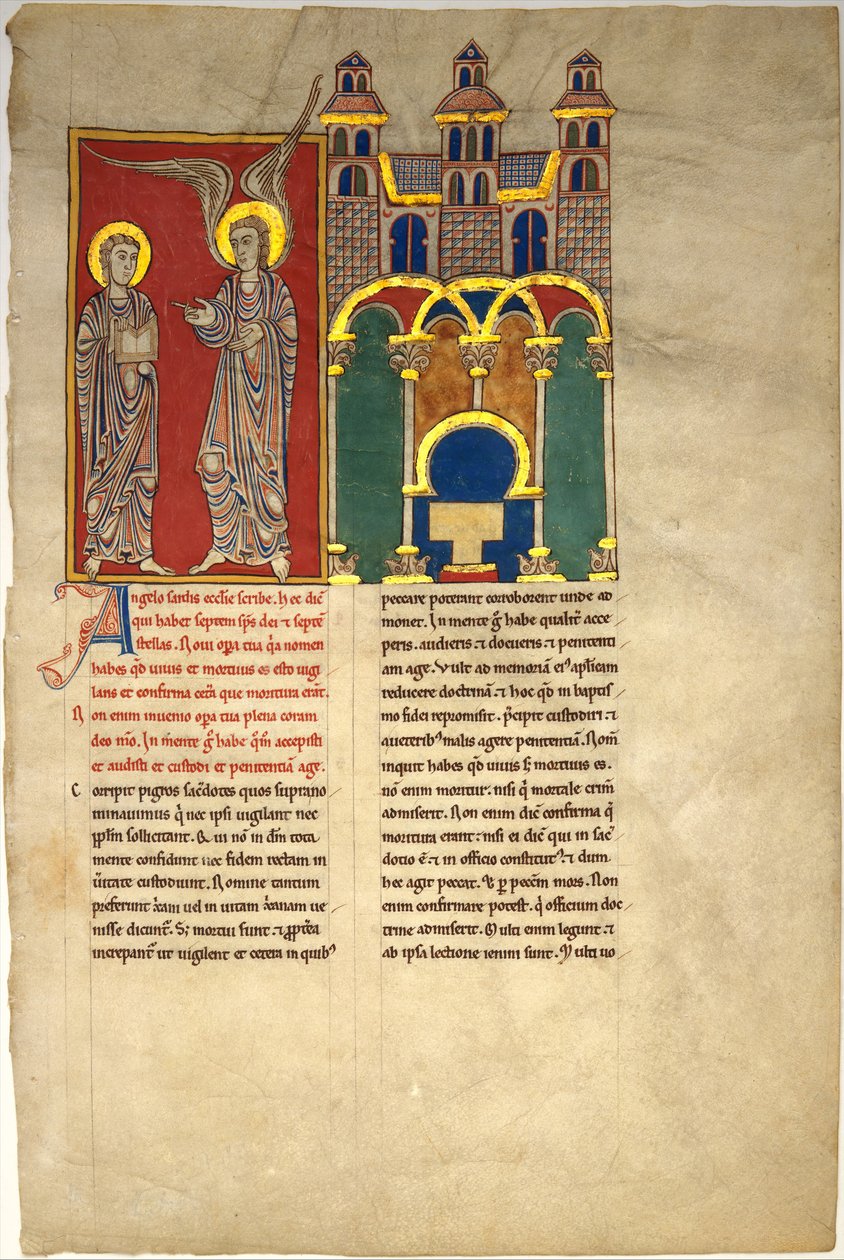 Angelo sardis eccl̅ie scribe. hec dic̅
qui habet septem sp̅s dei ⁊ septe̅
stellas. Noui op̅a tua q̅a nomen
habes q̅d uiuis et mortuus es esto uigi
lans et confirma cet̅a que moritura era̅t.
Non enim inuenio op̅a tua plena coram
deo m̅o. In mente g̊ habe q̅m accepisti
et audisti et custodi et penitentia̅ age.
Corripit pigros sac̅dotes quos suprano
minauimus q̇ nec ipsi uigilant nec
pp̅l̅m sollicitant. Qui no̅ in d̅m tota
mente confidunt nec fidem rectam in
u̅itate custodiunt. Nomine tantum
preferunt x̅am uel in uitam x̅anam ue
nisse dicunt᷑. S; mortui sunt ⁊ ꝓpt̅ea
increpant᷑ ut uigilent et cetera in quibꝰ
peccare poterant corroborent unde ad
monet. In mente g̊ habe qualit᷑ acce
peris. audieris ⁊ docueris ⁊ penitenti
am age. Vult ad memoria̅ eiꝰ ap̅licam
reducere doctrina̅ ⁊ hoc q̅d in baptis
mo fidei repromisit. p̅cipit custodiri ⁊
a ueteribꝰ malis agere penitentia̅. Nom̅
inquit habes q̅d uiuis s; mortuus es.
no̅ enim morit᷑ nisi q̇ mortale crim̅
admiserit. Non enim dic̅ confirma q̇
moritura erant nisi ei dic̅ qui in sac̅
dotio e̅ ⁊ in officio constitutꝰ ⁊ dum
hec agit peccat. & ꝑ pecc̅m mors. Non
enim confirmare potest. q̇ officium doc
trine admiserit. Multi enim legunt ⁊
ab ipsa lectione ieiuni sunt. Multi uo